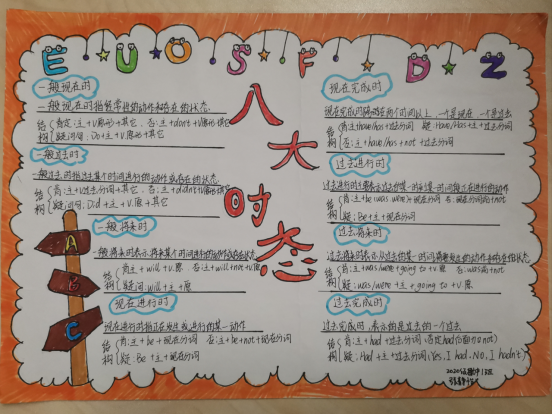 E U O S F D Z
八大时态
一般现在时
一般现在时指经常性的动作和存在的状态.
结构
肯定:主+V原形+其它. 否:主+don't+V原形+其它
疑问句:Do+主+V原形+其它
一般过去时
一般过去时指过去某个时间进行的动作或存在的状态
结构
肯:主+V过去分词+其它. 否:主+didn't+V原形+其它
疑问句:Did+主+V原+其它
一般将来时
一般将来时表示将来某个时间进行的动作或存在的状态
结构
肯:主+will+V原 否:主+will+not+V原
疑问:will+主+原
现在进行时
现在进行时指正在发生或进行的某一动作
结构
肯:主+be+现在分词 否:主+be+not+现在分词
疑:Be+主+现在分词
A
B
C
现在完成时
现在完成时 两个时间以上,一个是现在 一个是过去
结构
肯:主+have/has+过去分词 疑:Have/Has+主+过去分词
否:主+have/has+not+过去分词
过去进行时
过去进行时主要表示过去的某一时刻或某一时间段正在进行的动作
结构
肯:主+be(was.were)+现在分词 否:
疑:Be+主+现在分词
过去将来时
过去将来时表示从过去的某一时间 发生的动作和存在的状态
结构
肯:主+was/were+going to+V原 否:was后not
疑:was/were+主+going to+V原
过去完成时
过去完成时,表示的是过去的一个过去
结构
肯:主+had+过去分词(否定had后面加not)
疑:Had+主+过去分词(Yes, I had. No, I hadn't)